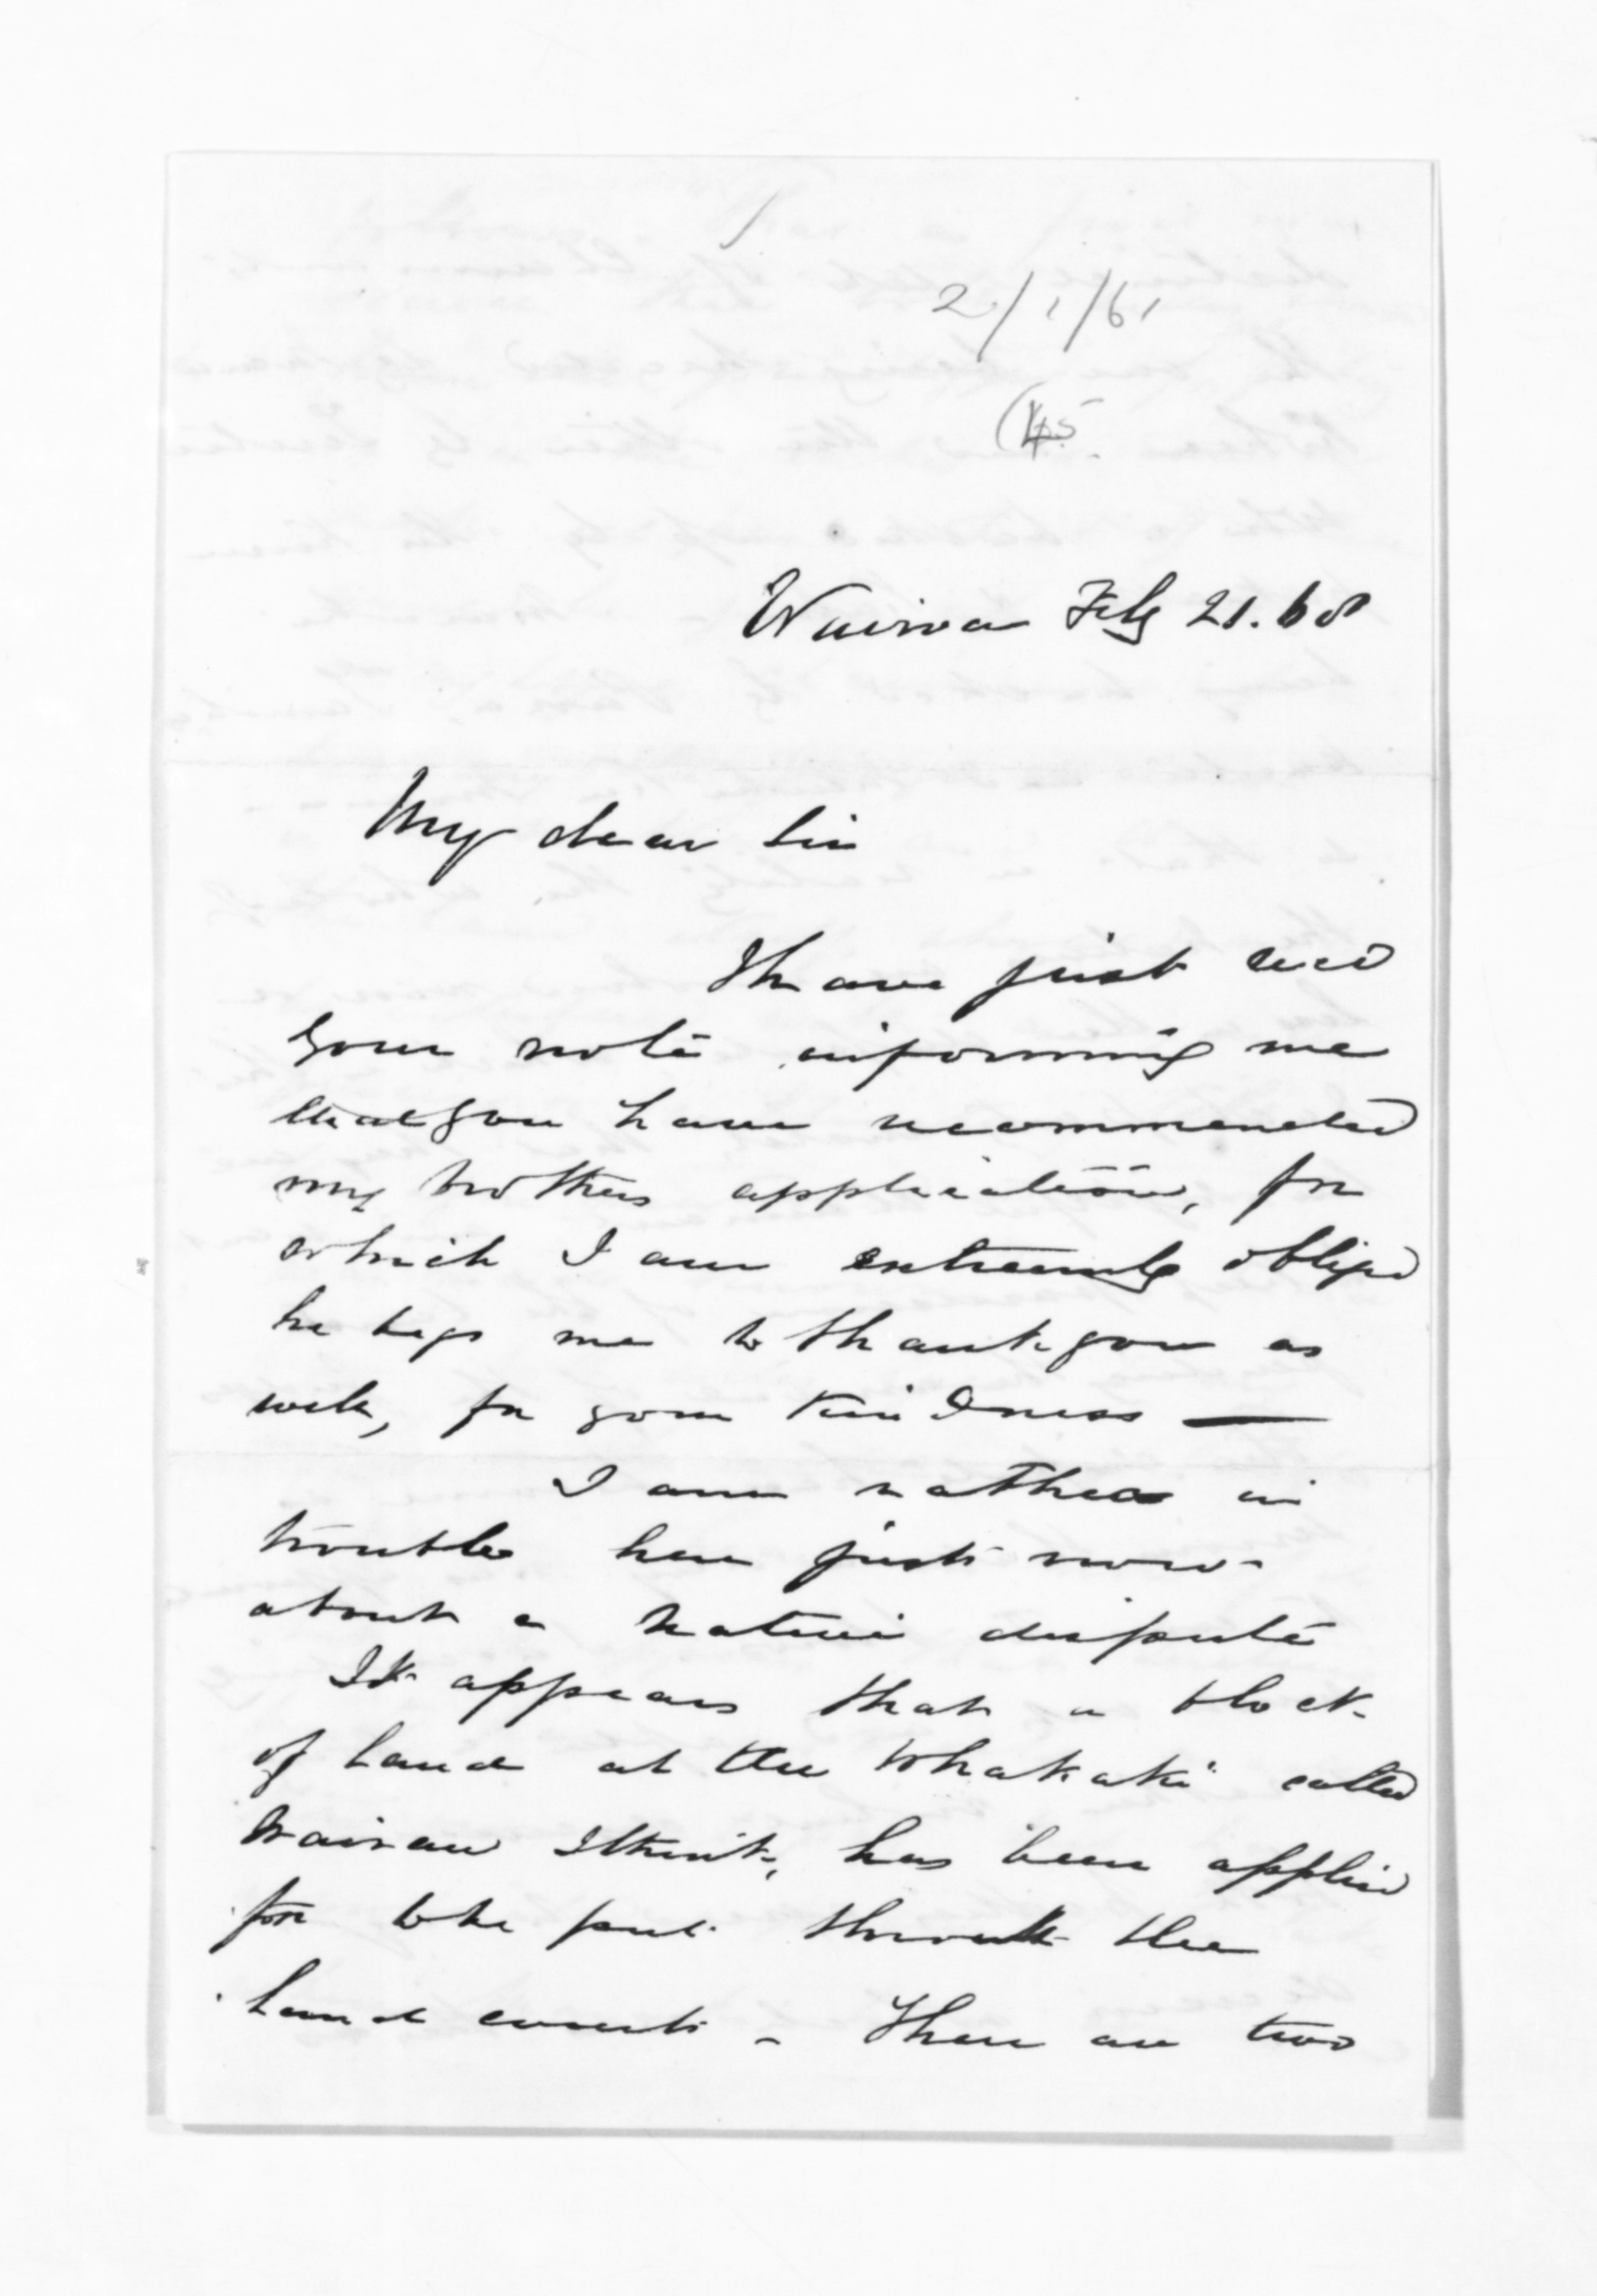 2/1/61
Wairoa Feby 21. 68
My dear Sir
I have just recd
your note informing me
that you have recommended
my brothers application, for
which I am extremely obliged
he begs me to thank you as
well, for your kindness —
I am rather in
trouble here just now
about a native dispute
It appears that a block
of land at the Whakaki called
I think, has been applied
for to be put through the
land court - There are two